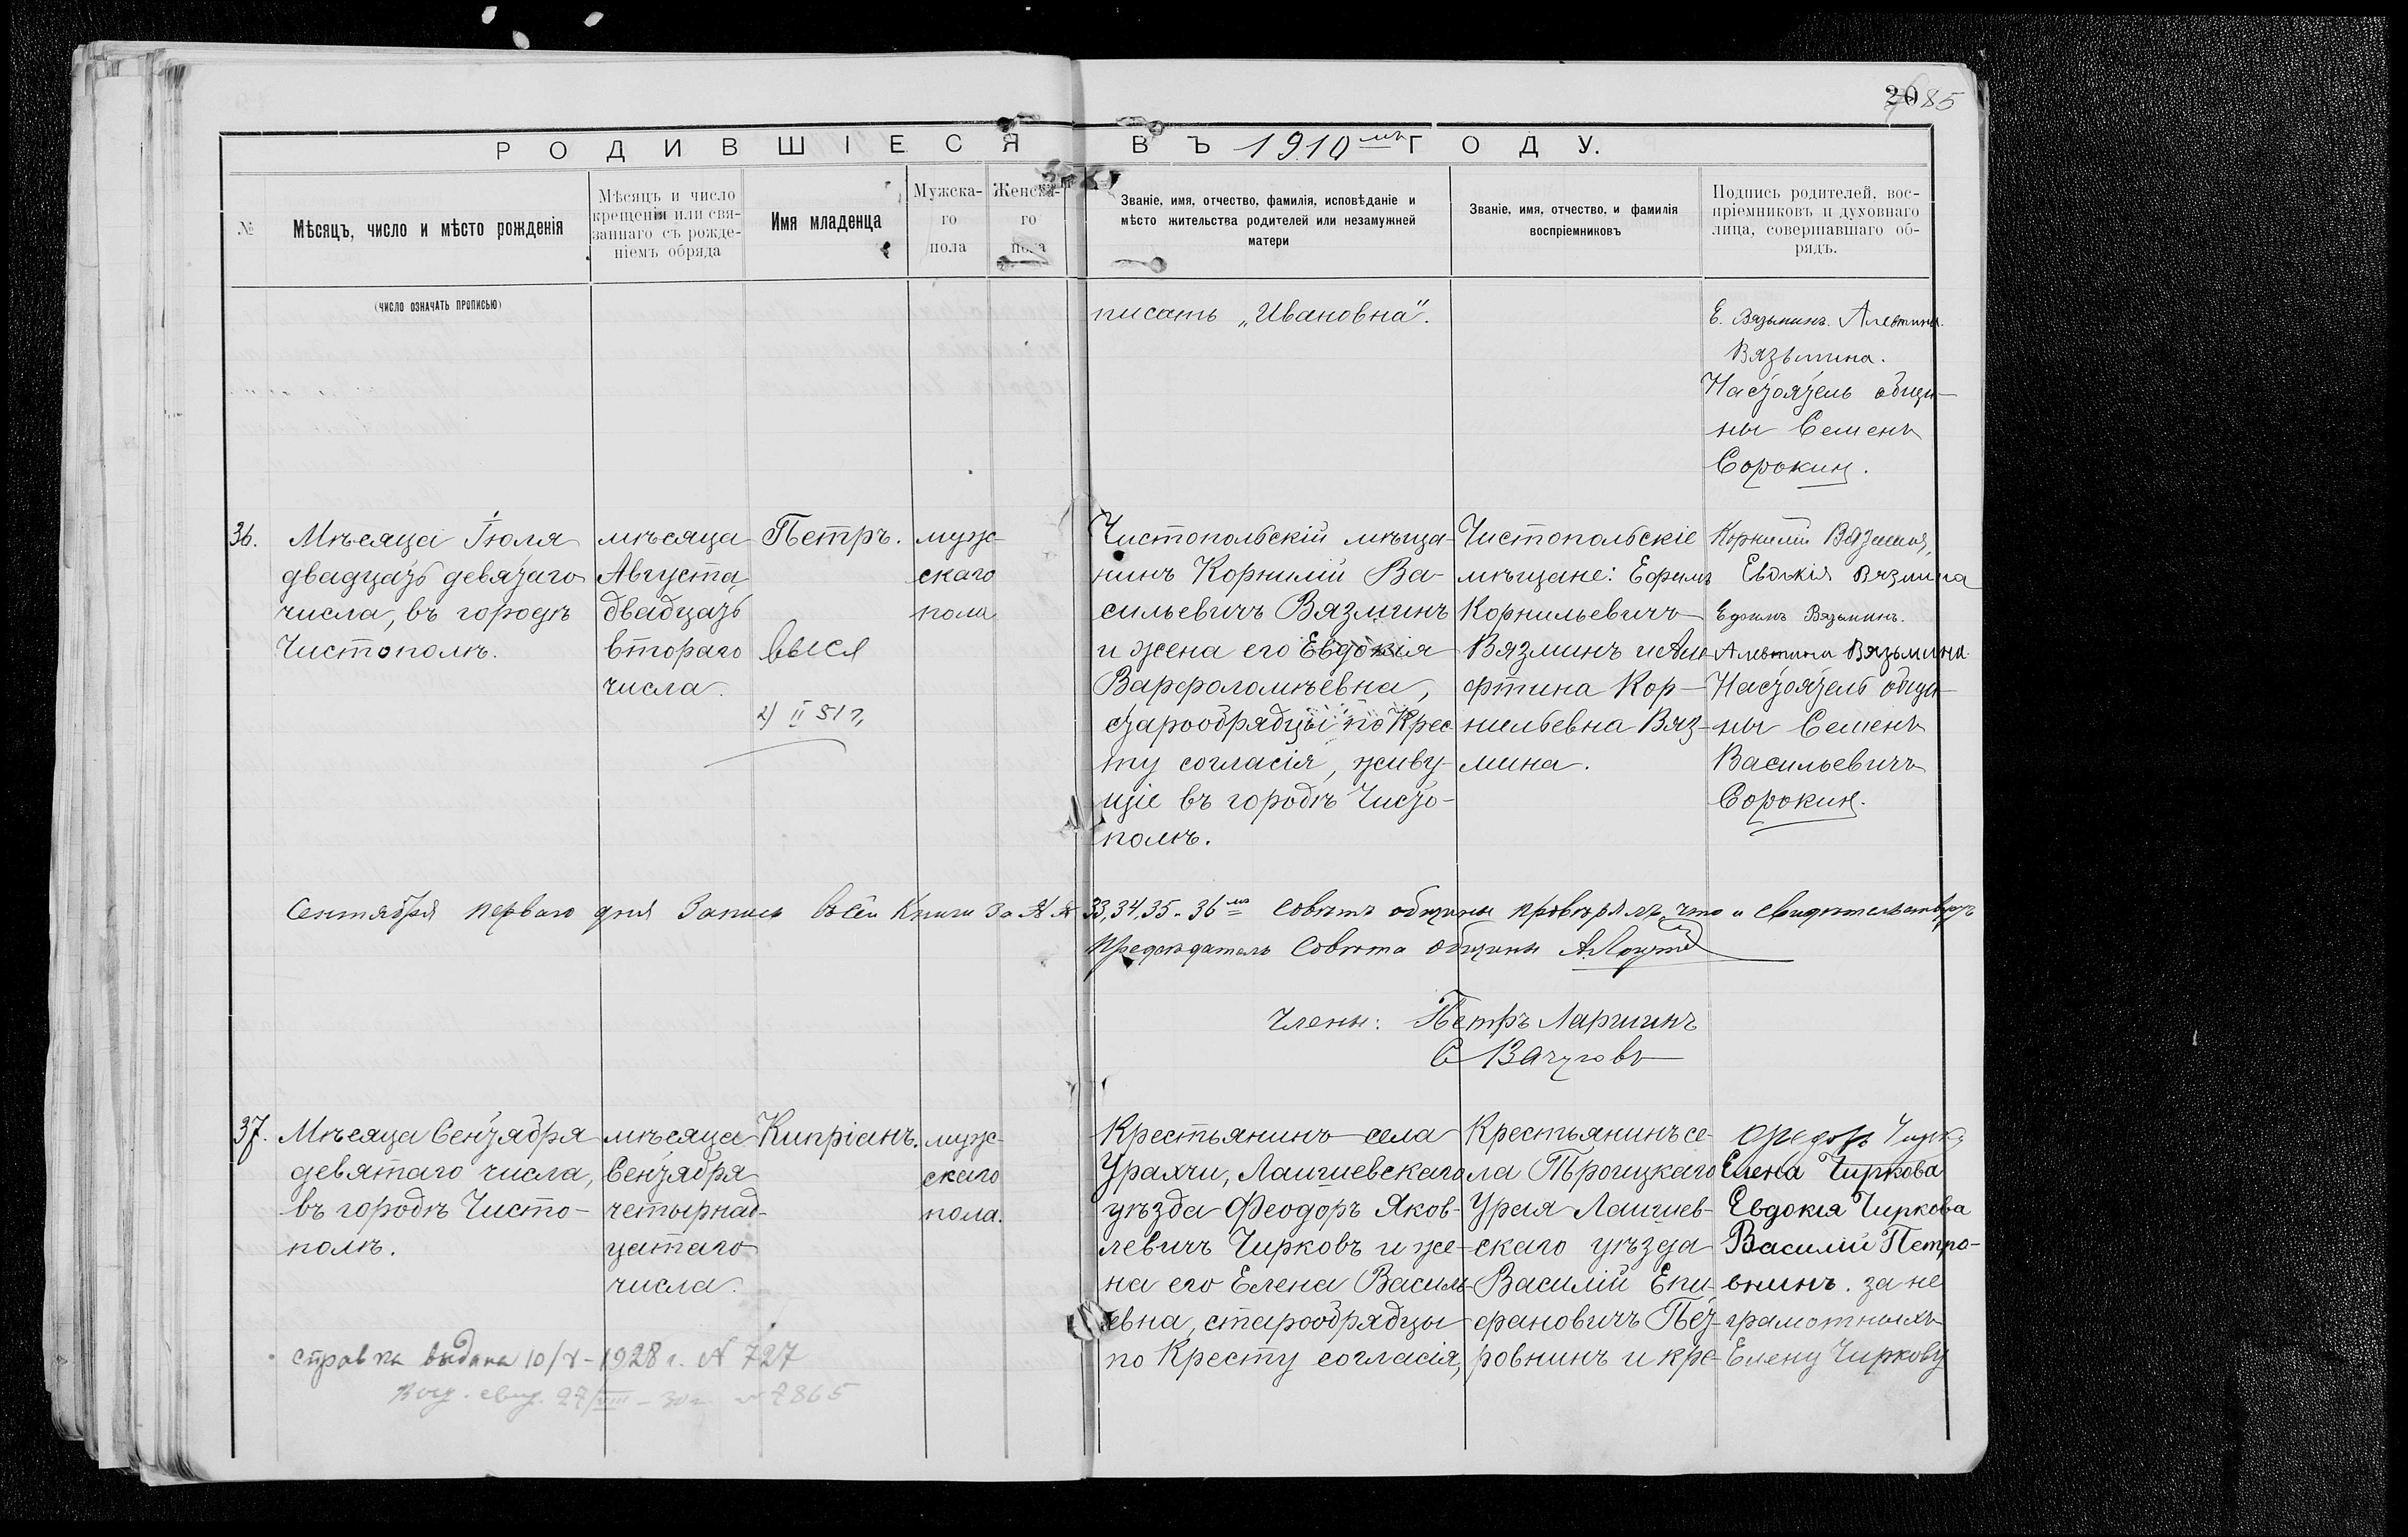 2085
РОДИВШІЕСЯ ВЪ 1910мъ ГОДУ.
№
Мѣсяцъ, число и мѣсто рожденія
Мѣсяцъ и число
крещенія или свя-
заннаго съ рожде-
ніемъ обряда
Имя младенца
Мужска-
го
пола
Женска-
го
пола
Званіе, имя, отчество, фамилія, исповѣданіе и
мѣсто жительства родителей или незамужней
матери
Званіе, имя, отчество, и фамилія
воспріемниковъ
Подпись родителей, вос-
пріемниковъ и духовнаго
лица, совершавшаго об-
рядъ.
(число означать прописью)
писать „Ивановна“.
Е. Вязьминъ. Алевтина
Вязьмина.
Настоятель общи-
ны Семенъ
Сорокин.
36.
Мѣсяца Іюля
двадцать девятаго
числа, въ городѣ
Чистополѣ.
мѣсяца
Августа
двадцать
втораго
числа.
Петръ.
выся
2/II 51 г.
муж-
скаго
пола
Чистопольскій мѣща-
нинъ Корнилій Ва-
сильевичъ Вязминъ
и жена его Евдокія
Варфоломѣевна,
старообрядцы по Крес-
ту согласія, живу-
щіе въ городѣ Чисто-
полѣ.
Чистопольскіе
мѣщане: Ефимъ
Корнильевичъ
Вязминъ и Але-
фтина Кор-
нильевна Вяз-
мина.
Корнилій Вязмин,
Евдокія Вязмина
Ефимъ Вязьминъ.
Алевтина Вязьмина
Настоятель общи-
ны Семенъ
Васильевичъ
Сорокин.
Сентября перваго дня Запись всей Книги За №№ 33, 34. 35. 36мъ Совѣтъ общины провѣрялъ, что и свидѣтельствуетъ
Предсѣдатель Совѣта общины
Члены: Петръ Ларшинъ
С Вачуговъ
37.
Мѣсяца Сентября
девятаго числа,
въ городѣ Чисто-
полѣ.
мѣсяца
Сентября
четырнад-
цатаго
числа.
Кипріанъ.
муж-
скаго
пола.
Крестьянинъ села
Урахчи, Лаишевскаго
уѣзда Феодоръ Яков-
левичъ Чирковъ и же-
на его Елена Василь-
евна, старообрядцы
по Кресту согласія,
Крестьянинъ се-
ла Троицкаго
Урая Лаишев-
скаго уѣзда
Василій Епи-
фановичъ Пет-
ровнинъ и кре-
Федоръ Чирк
Елена Чиркова
Евдокія Чиркова
Василій Петро-
внинъ. за не
грамотныхъ
Елену Чиркову
справка выдана 10/X - 1928 г. № 727
Выд. свид. 27/VIII - 30 г. № 7865